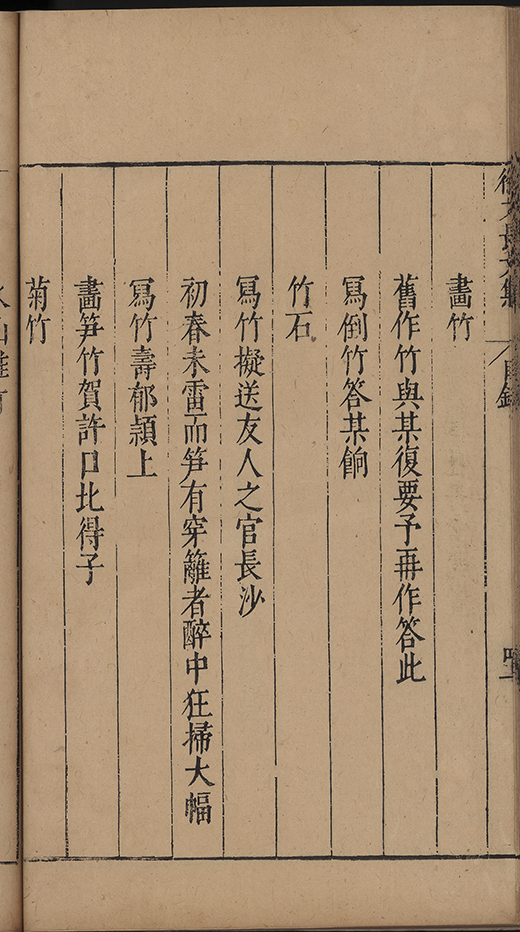 畵竹
舊作竹與某復要予再作答此
冩倒竹答某餉
竹石
冩竹擬送友人之官長沙
初春未雷而笋有穿籬者醉中狂掃大幅
冩竹壽郁頴上
畵笋竹賀許口北得子
菊竹